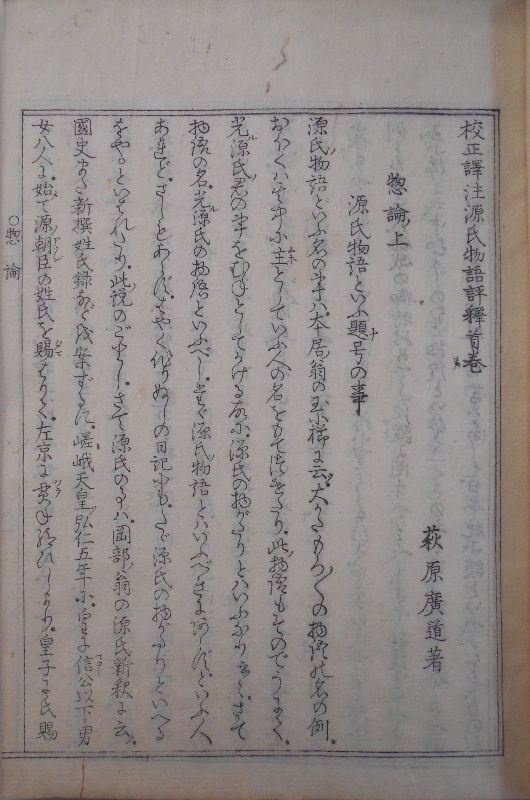 校正譯注源氏物語評釋首巻
萩原廣道著
惣論上
源氏物語といふ題号の事
源氏物語といふ名の事ハ本居翁の玉小櫛に云大かたもろ〳〵の物語の名の例
おほくハそが中に主としていふ人の名をもてつけたり此物語もそのでうにて
光源氏君の事をむねとしてかける故に源氏の物がたりとハいふなり云々さて
物語の名光源氏の物語といふべしたゞ源氏物語とハいふべきにあらずといふ人
あれどさしもあらずはやく作りぬしの日記にもたゞ源氏の物がたりといへる
をやといはれたり此説のごとしさて源氏の事ハ岡部翁の源氏新釈に云
國史また新撰姓氏録などを案ずるに嵯峨天皇弘仁五年に皇子信公以下男
女八人に始て源朝臣の姓氏を賜はりて左京に貫ね給ひしより皇子に氏賜
○惣論